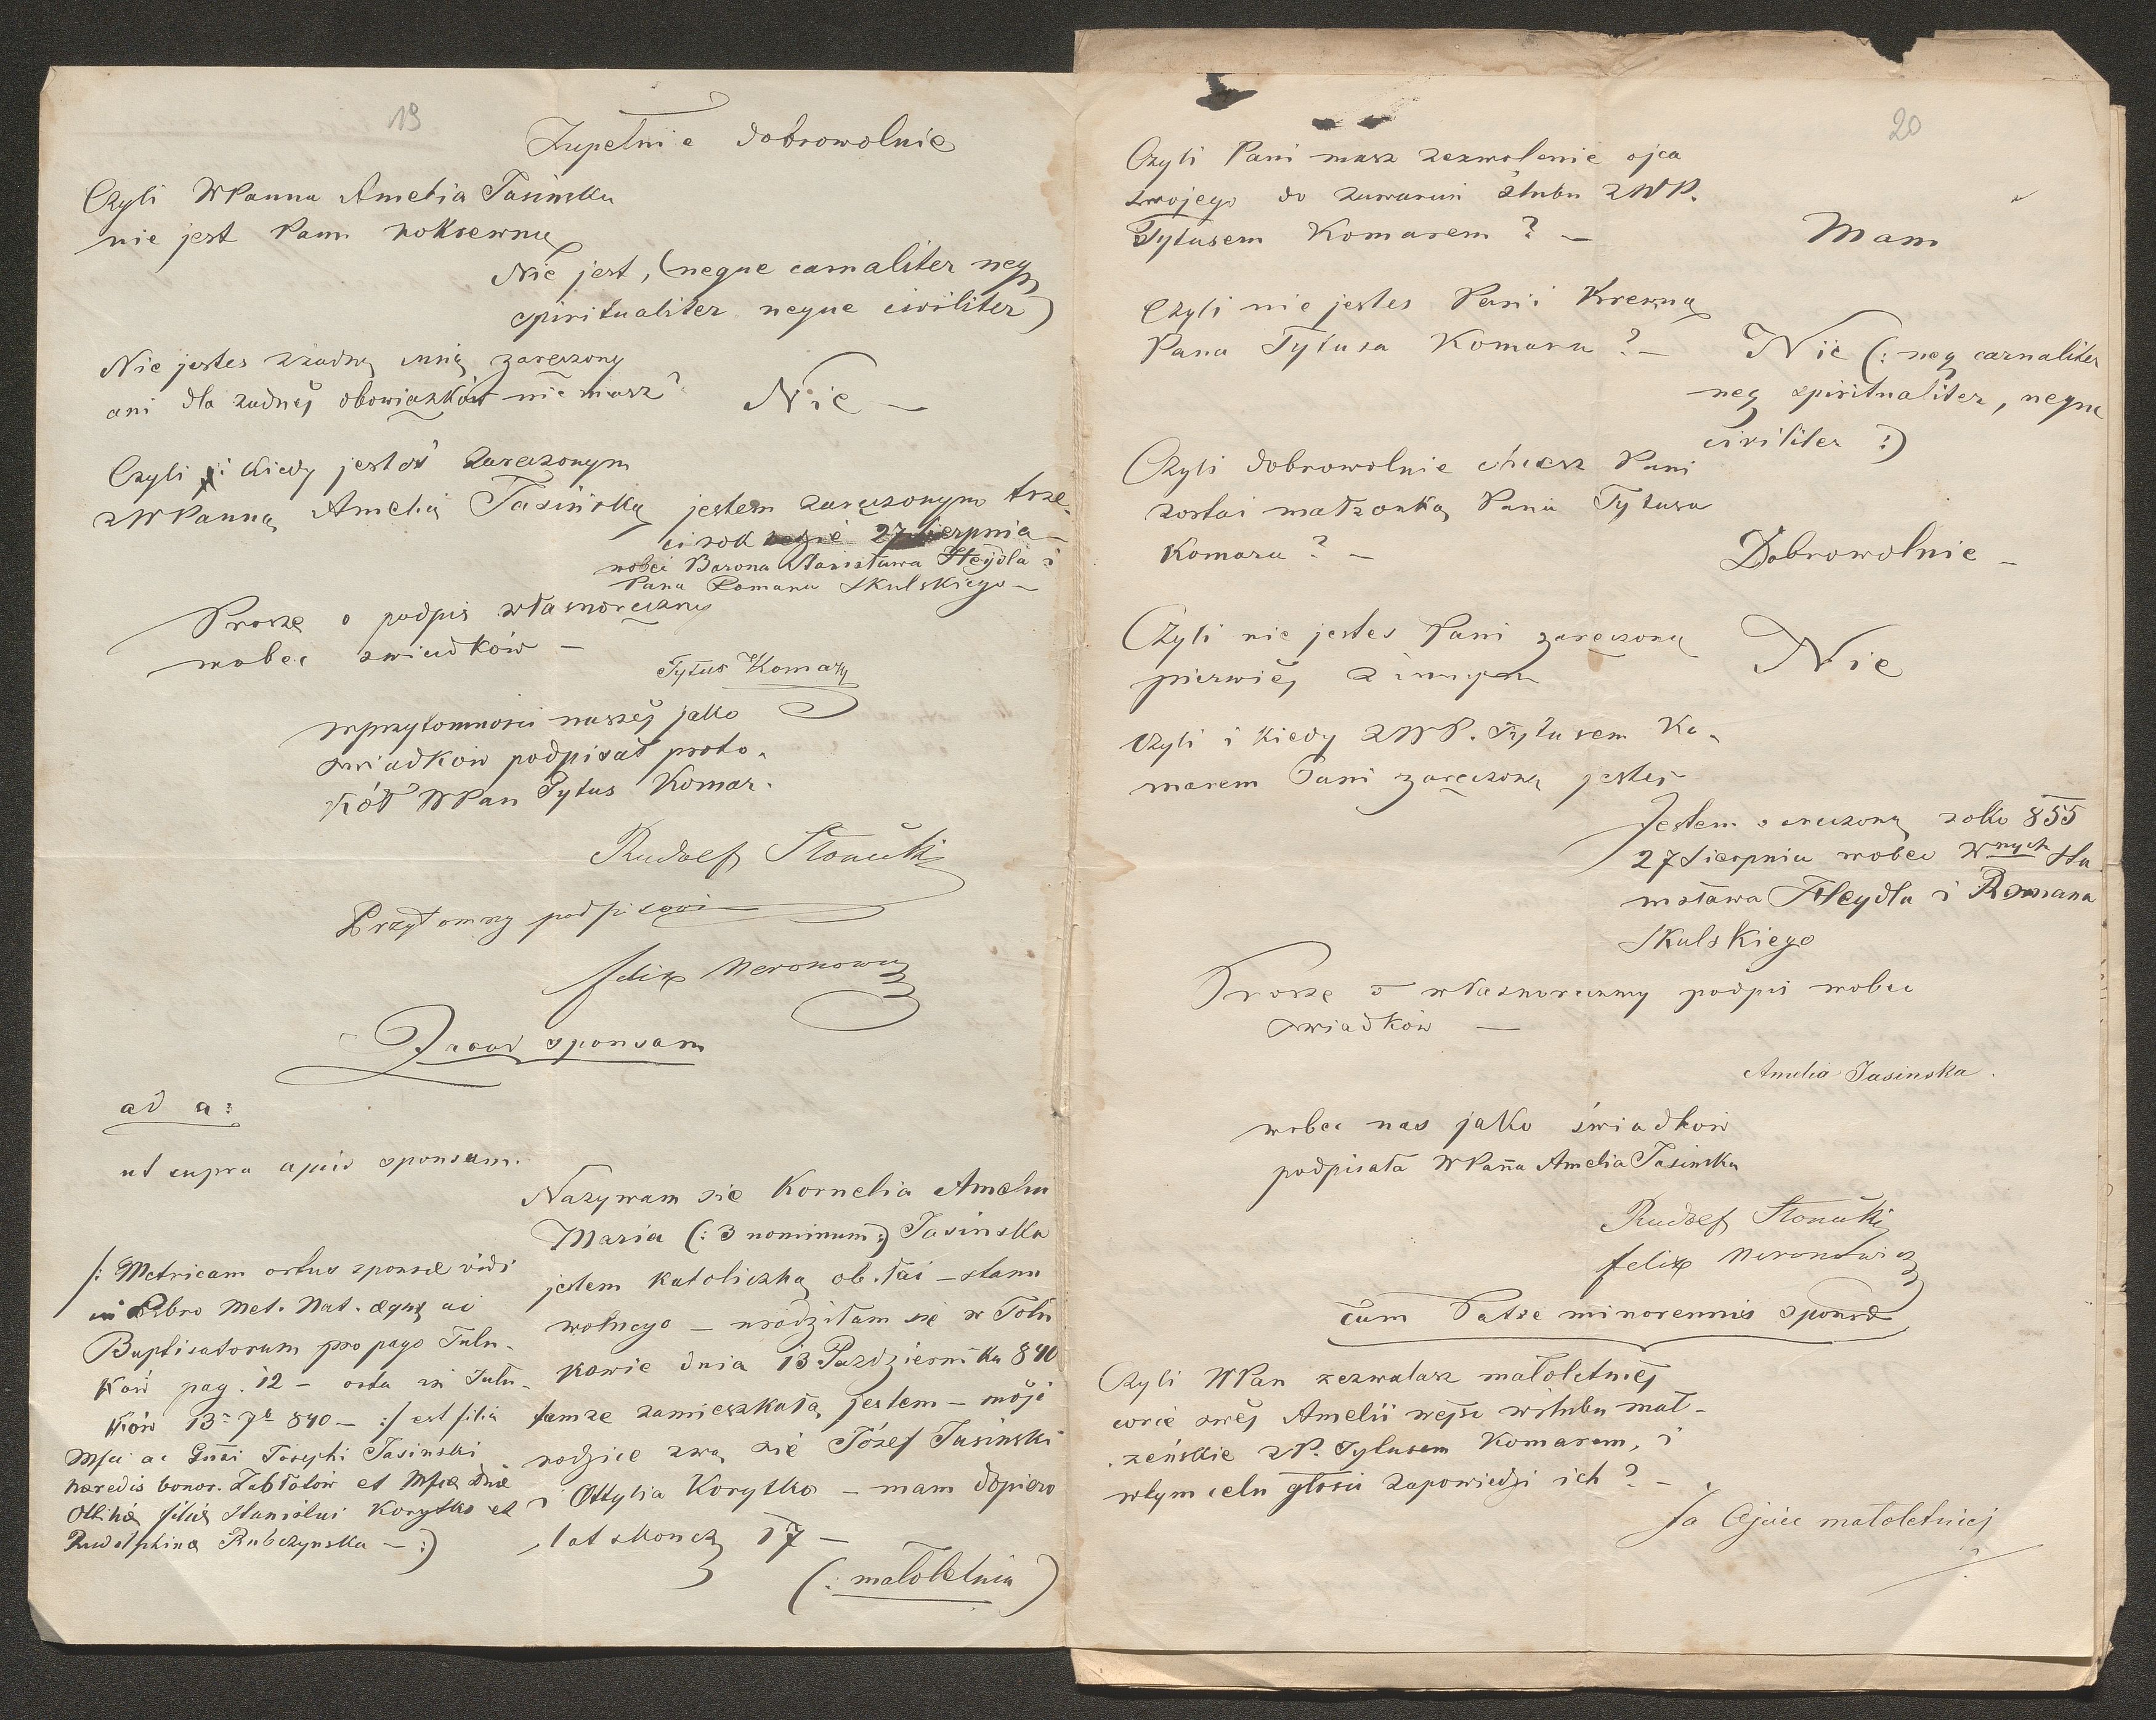 19
Zupełnie dobrowolnie
Czyli WPanna Amelia Jasinska
nie jest Panu pokrewną
Nie jest, (neque carnaliter neq
spiritualiter neque civiliter)
Nie jestes zżadną inną zaręczony
ani dla żadnéj obowiązków nie masz?
Nie —
Czyli i kiedy jestes zaręczonym
zWPanną Amelią Jasińską
jestem zaręczonym trze
ci rok 27 Sierpnia —
wobec Barona Stanisława Heydla i
Pana Romana Skulskiego —
Proszę o podpis własnoręczny
wobec swiadków —
Tytus Komar
wprzytomnosci naszéj jako
swiadków podpisał proto-
kół WPan Tytus Komar.
Rudolf Słonecki
Przytomny podpisowi
felix Meronowicz
Quoad sponsam
ad a:
ut supra apud sponsum.
Nazywam sie Kornelia Amelia
Maria (: 3 nominum :) Jasinska
jestem katoliczką ob. łaci — stanu
wolnego — urodziłam się w Tołu
kowie dnia 13 Pazdziernika 840
tamze zamieszkała jestem — moji
rodzice zwą sie Józef Jasinski
i Ottylia Korytko — mam dopiero
lat skończ 17 —
(: małoletnia)
/: Metricam ortus sponsæ vidi
in Libro Met. Nat. æque ac
Baptisatorum pro pago Tułu-
ków pag. 12 — orta in Tułu-
ków 13 — 840 — :/ est filia
Mfci ac Gnsi Josephi Jasinski
hæredis bonor. Zabłotów et Mfcæ Dnæ
Ottiliæ filiæ Stanislai Korytko et
Rudolphina Rubczynska — :)
20
Czyli Pani masz zezwolenie ojca
swojego do zawarcia ślubu zWP.
Tytusem Komarem? —
Mam
Czyli nie jestes Pani Krewną
Pana Tytusa Komara? —
Nie (: neq carnaliter
neq spiritualiter, neque
civiliter :)
Czyli dobrowolnie chcesz Pani
zostać małzonką Pana Tytusa
Komara? —
Dobrowolnie —
Czyli nie jestes Pani zaręczoną
pierwiéj z innym
Nie
Czyli i kiedy zWP. Tytusem Ko-
marem Pani zaręczoną jesteś
Jestem zaręczoną roku 855
27 Sierpnia wobec Wnych Sta
nisława Heydla i Romana
Skulskiego
Proszę o własnoręczny podpis wobec
swiadków —
Amelia Jasinska.
wobec nas jako świadków
podpisała WPanna Amelia Jasinska
Rudolf Słonecki
felix Meronowicz
Cum Patre minorennis sponsæ
Czyli WPan zezwalasz małoletniéj
corce swéj Amelii wejść wslubu mał-
zeńskie zP. Tytusem Komarem, i
wtym celu głosić zapowiedzi ich? —
Ja Ojciec małoletniej